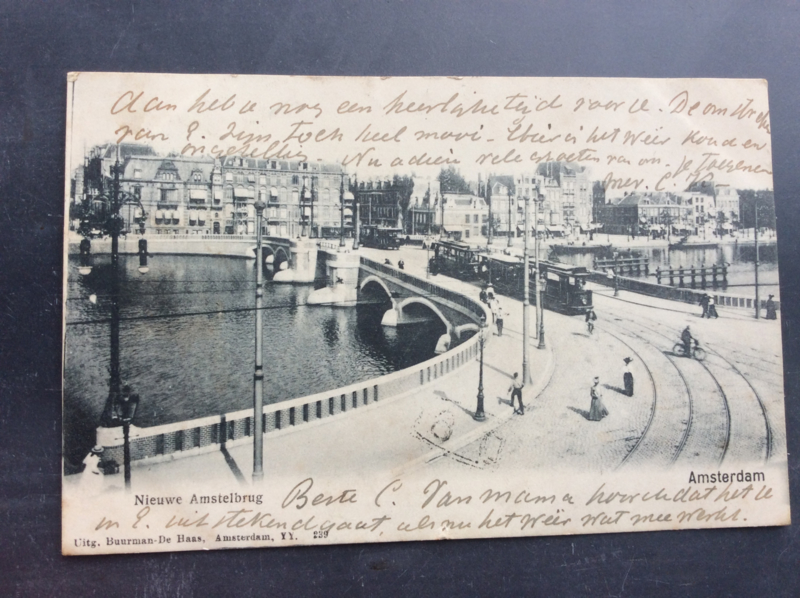 Aan heb je nog een heerlijke tijd voor je. De omstreken
van E. zijn toch heel mooi - Hier is het weer koud en
ongezellig Nu adieu vele groeten van ons je toegenegen
C.
Nieuwe Amstelbrug
Amsterdam
Beste C. Van mama hoorde ik dat het je
in E. uitstekend gaat, als nu het weer wat mee werkt.
Uitg. Buurman-De Haas, Amsterdam, YY. 239